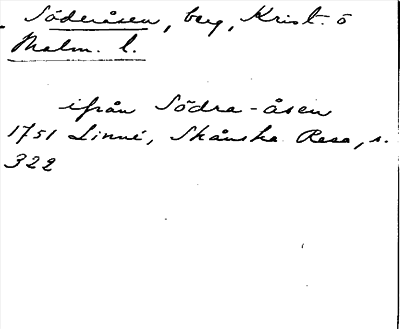 Söderåsen, berg, Krist. o
Malm. l.
ifrån Södra-åsen
1751 Linné, Skånska Resa, s.
322